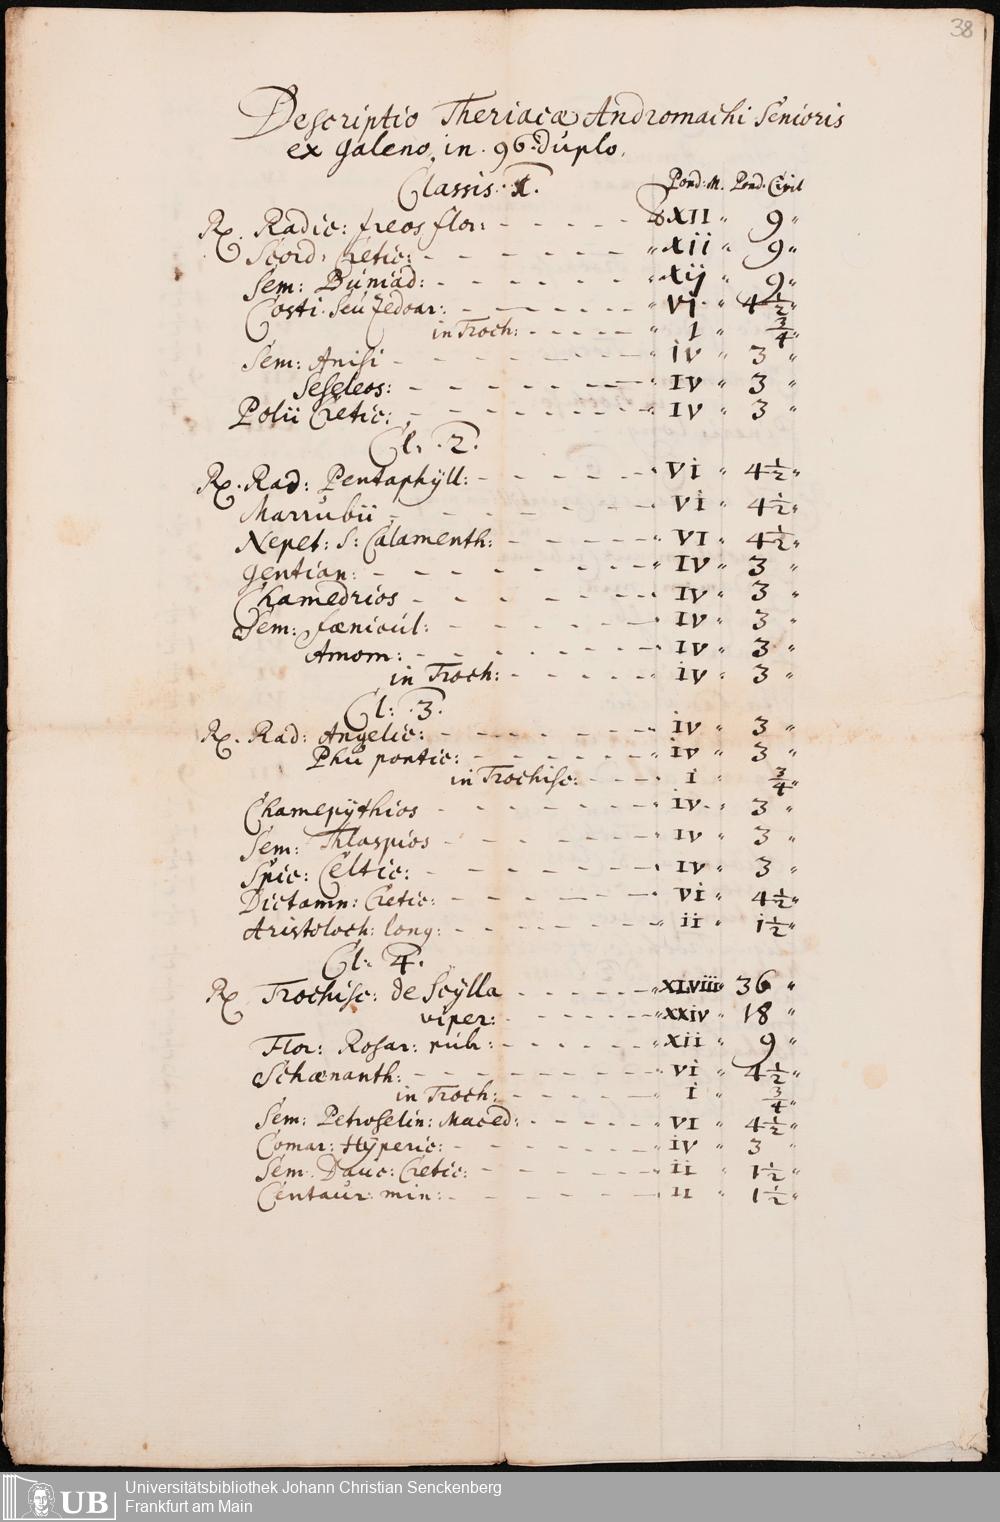 38
Descriptio Theriacæ Andromachi Senioris
ex Galeno, in. 96. Duplo.
Classis. 1. Pond: M. Pond. Civil
Rx. Radic: Ireos flor: - - - - - ℔ XII " 9 "
Scord: Cretic: - - - - - - " xii " 9 "
Sem: Buniad: - - - - - - " xij " 9 "
Costi. seu Zedoar: - - - - - - " VI " 4 1/2 "
in Troch: - - - - - " I " 3/4 "
Sem: Anisi - - - - - - " iv " 3 "
Seseleos: - - - - - - " IV " 3 "
Polii Cretic: - - - - - - " IV " 3 "
Cl: .2.
Rx. Rad: Pentaphÿll: - - - - - " Vi " 4 1/2 "
Marrubii - - - - - - " Vi " 4 1/2 "
Nepet: S: Calamenth: - - - - - " VI " 4 1/2 "
Gentian: - - - - - - " IV " 3 "
Chamedrios - - - - - - " IV " 3 "
Sem: fænicul: - - - - - - " IV " 3 "
Amom: - - - - - - " IV " 3 "
in Troch: - - - - - " iv " 3 "
Cl: .3.
Rx. Rad: Angelic: - - - - - " iv " 3 "
Phu pontic: - - - - - " iv " 3 "
in Trochisc: - - - - " i " 3/4 "
Chamepÿthios - - - - - " iv " 3 "
Sem: Thlaspios - - - - - " IV " 3 "
Spic: Celtic: - - - - - - " IV " 3 "
Dictamn: Cretic: - - - - - " Vi " 4 1/2 "
Aristoloch: long: - - - - - " ii " i 1/2 "
Cl: 4.
Rx Trochisc: de Scÿlla - - - - - " XLviii " 36 "
viper: - - - - - " xxiv " 18 "
Flor: Rosar: rub: - - - - - " xii " 9 "
Schœnanth: - - - - - - " vi " 4 1/2 "
in Troch: - - - - - " i " 3/4 "
Sem: Petroselin: Maced: - - - - - " VI " 4 1/2 "
Comar: Hÿperic: - - - - - " iv " 3 "
Sem: Dauc: Cretic: - - - - - " ii " 1 1/2 "
Centaur: min: - - - - - " II " 1 1/2 "
UB
Universitätsbibliothek Johann Christian Senckenberg
Frankfurt am Main